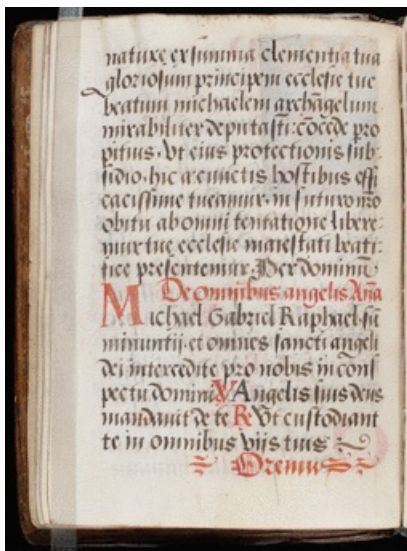 nature ex summa clementia tua
gloriosum principem ecclesie tue
beatum michaelem archãgelum
mirabiliter deputasti: cõcede pro
pitius. Vt eius protectionis sub-
sidio. hic a cunctis hostibus effi
cacissime tueamur. in futuro vero
obitu ab omni tentatione libere-
mur tue ecclesie maiestati beati-
fice presentemur. Per dominũ
De omnibus angelis Aña
Michael Gabriel Raphael sũ
mi nuntij. et omnes sancti angeli
dei intercedite pro nobis in cons
pectu domini V Angelis suis deus
mandavit de te R Vt custodiant
te in omnibus vijs tuis
Oremus